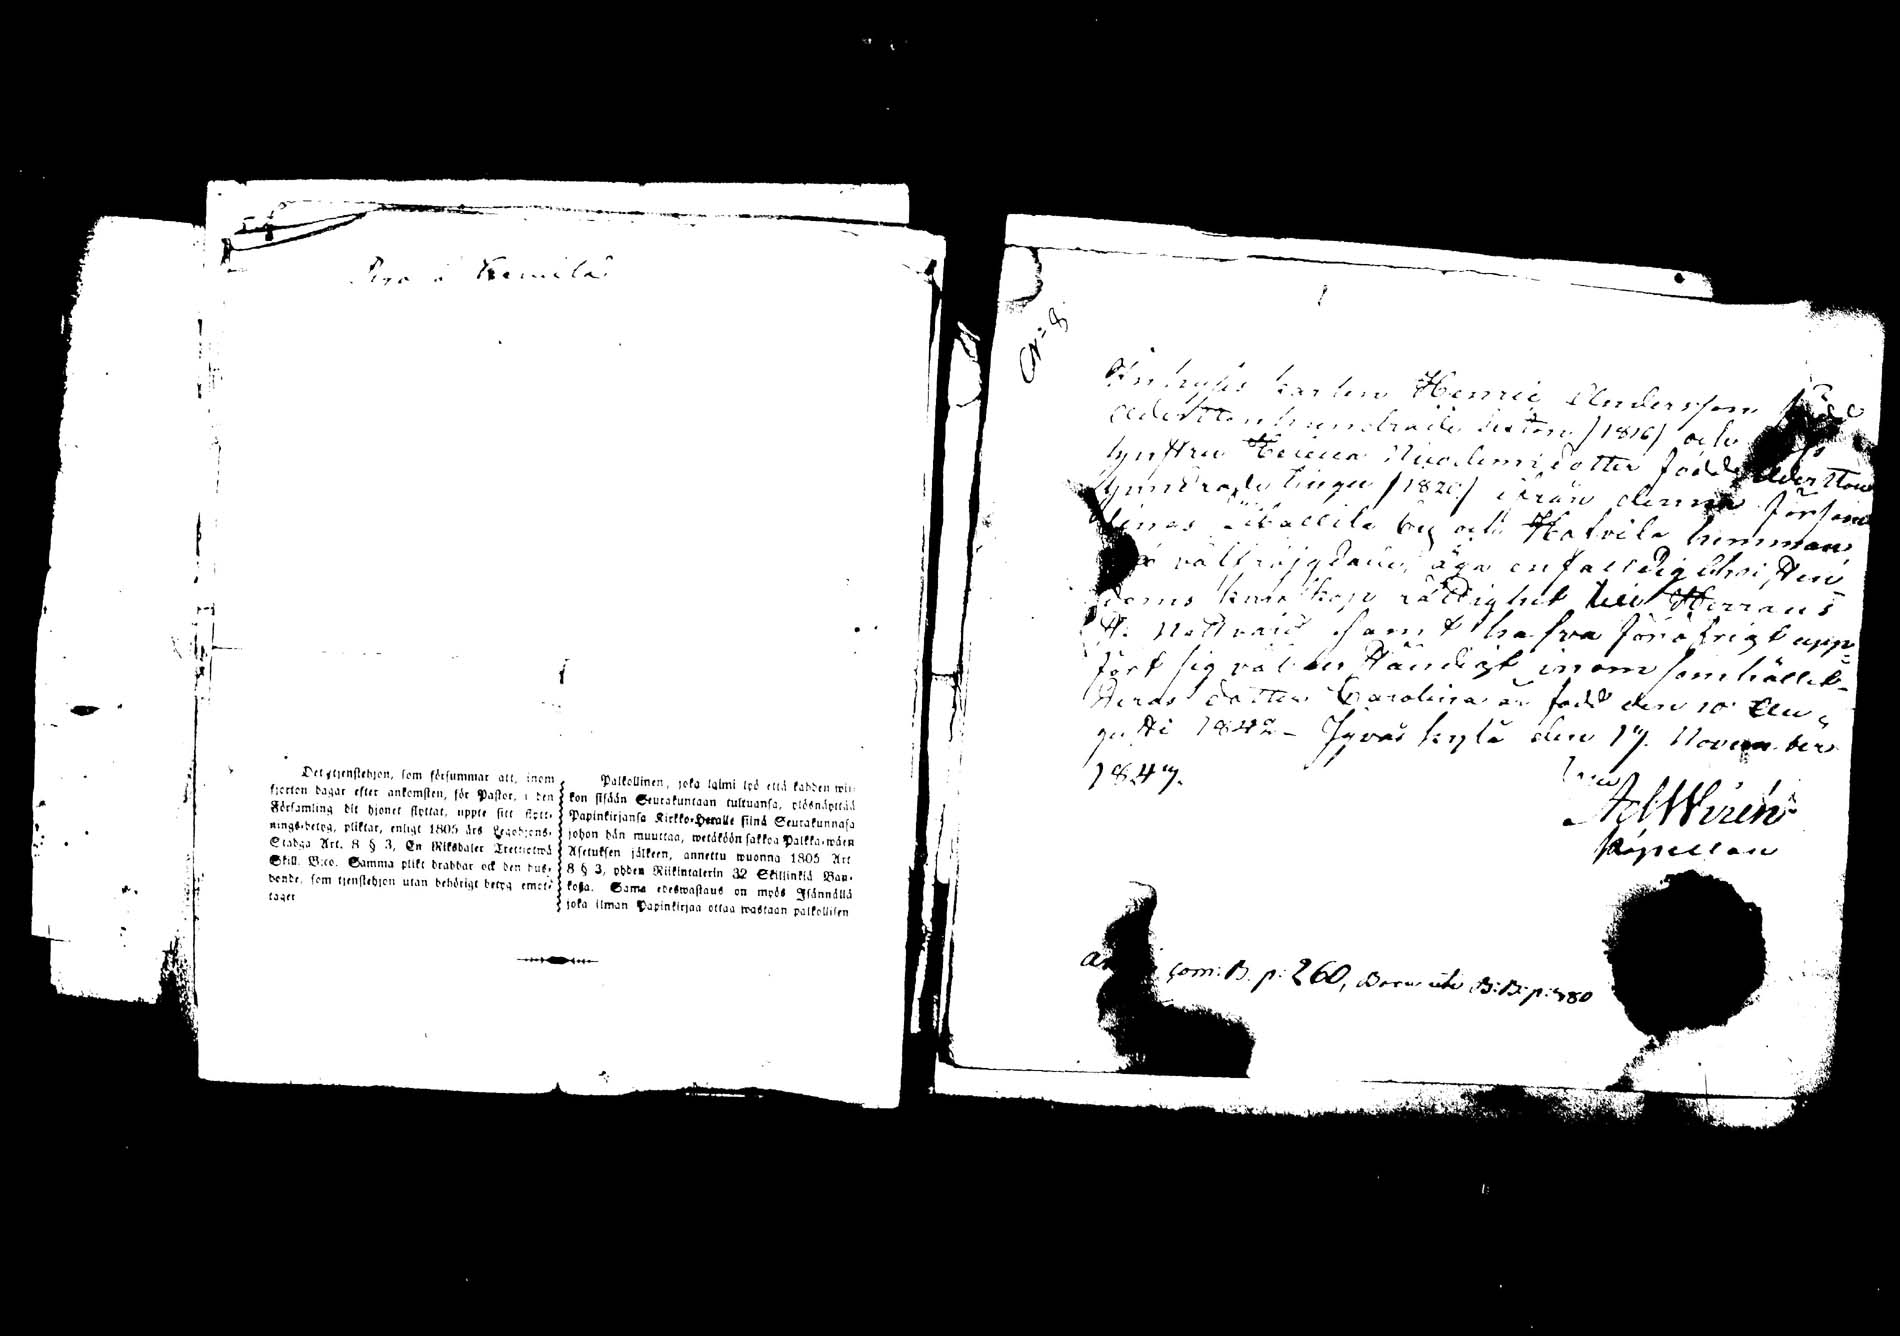 Det tjenstehjon, som försummar att, inom
fjorton dagar efter ankomsten, för Pastor, i den
Församling dit hjonet flyttat, uppte sitt flytt-
nings-betyg, pliktar, enligt 1805 års Legohjons-
Stadga Art. 8 § 3, En Riksdaler Trettiotwå
Skill. B:co. Samma plikt drabbar ock den hus-
bonde, som tjenstehjon utan behörigt betyg emot-
tager
Palkollinen, joka laimi lyö että kahden wii-
kon sisään Seurakuntaan tultuansa, ylösnäyttää
Papinkirjansa Kirkko-Herralle siinä Seurakunnasa
johon hän muuttaa, wetäköön sakkoa Palkka-wäen
Asetuksen jälkeen, annettu wuonna 1805 Art
8 § 3, yhden Riikintalerin 32 Skillinkiä Ban-
kosa. Sama edeswastaus on myös Isännällä
joka ilman Papinkirjaa ottaa wastaan palkollisen
N:8
Inhyses karlen Henric Andersson född
Adertonhundrade sexton /1816/ och
hustru Helena Nicodemidotter född Aderton
hundrade tjugu /1820/ ifrån denna församl
by och hemman
äga enfaldig Christen
doms kunskap rättighet till Herrans
H. Nattvard samt hafva föröfrigt upp-
fört sig väl anständigt inom samhället-
Deras dotter Carolina är född den 10 Au-
gusti 1842 - Jyväskylä den 17 November
1847.
Wirén
Kapellan
com: B. p: 260, B: B: p: 780